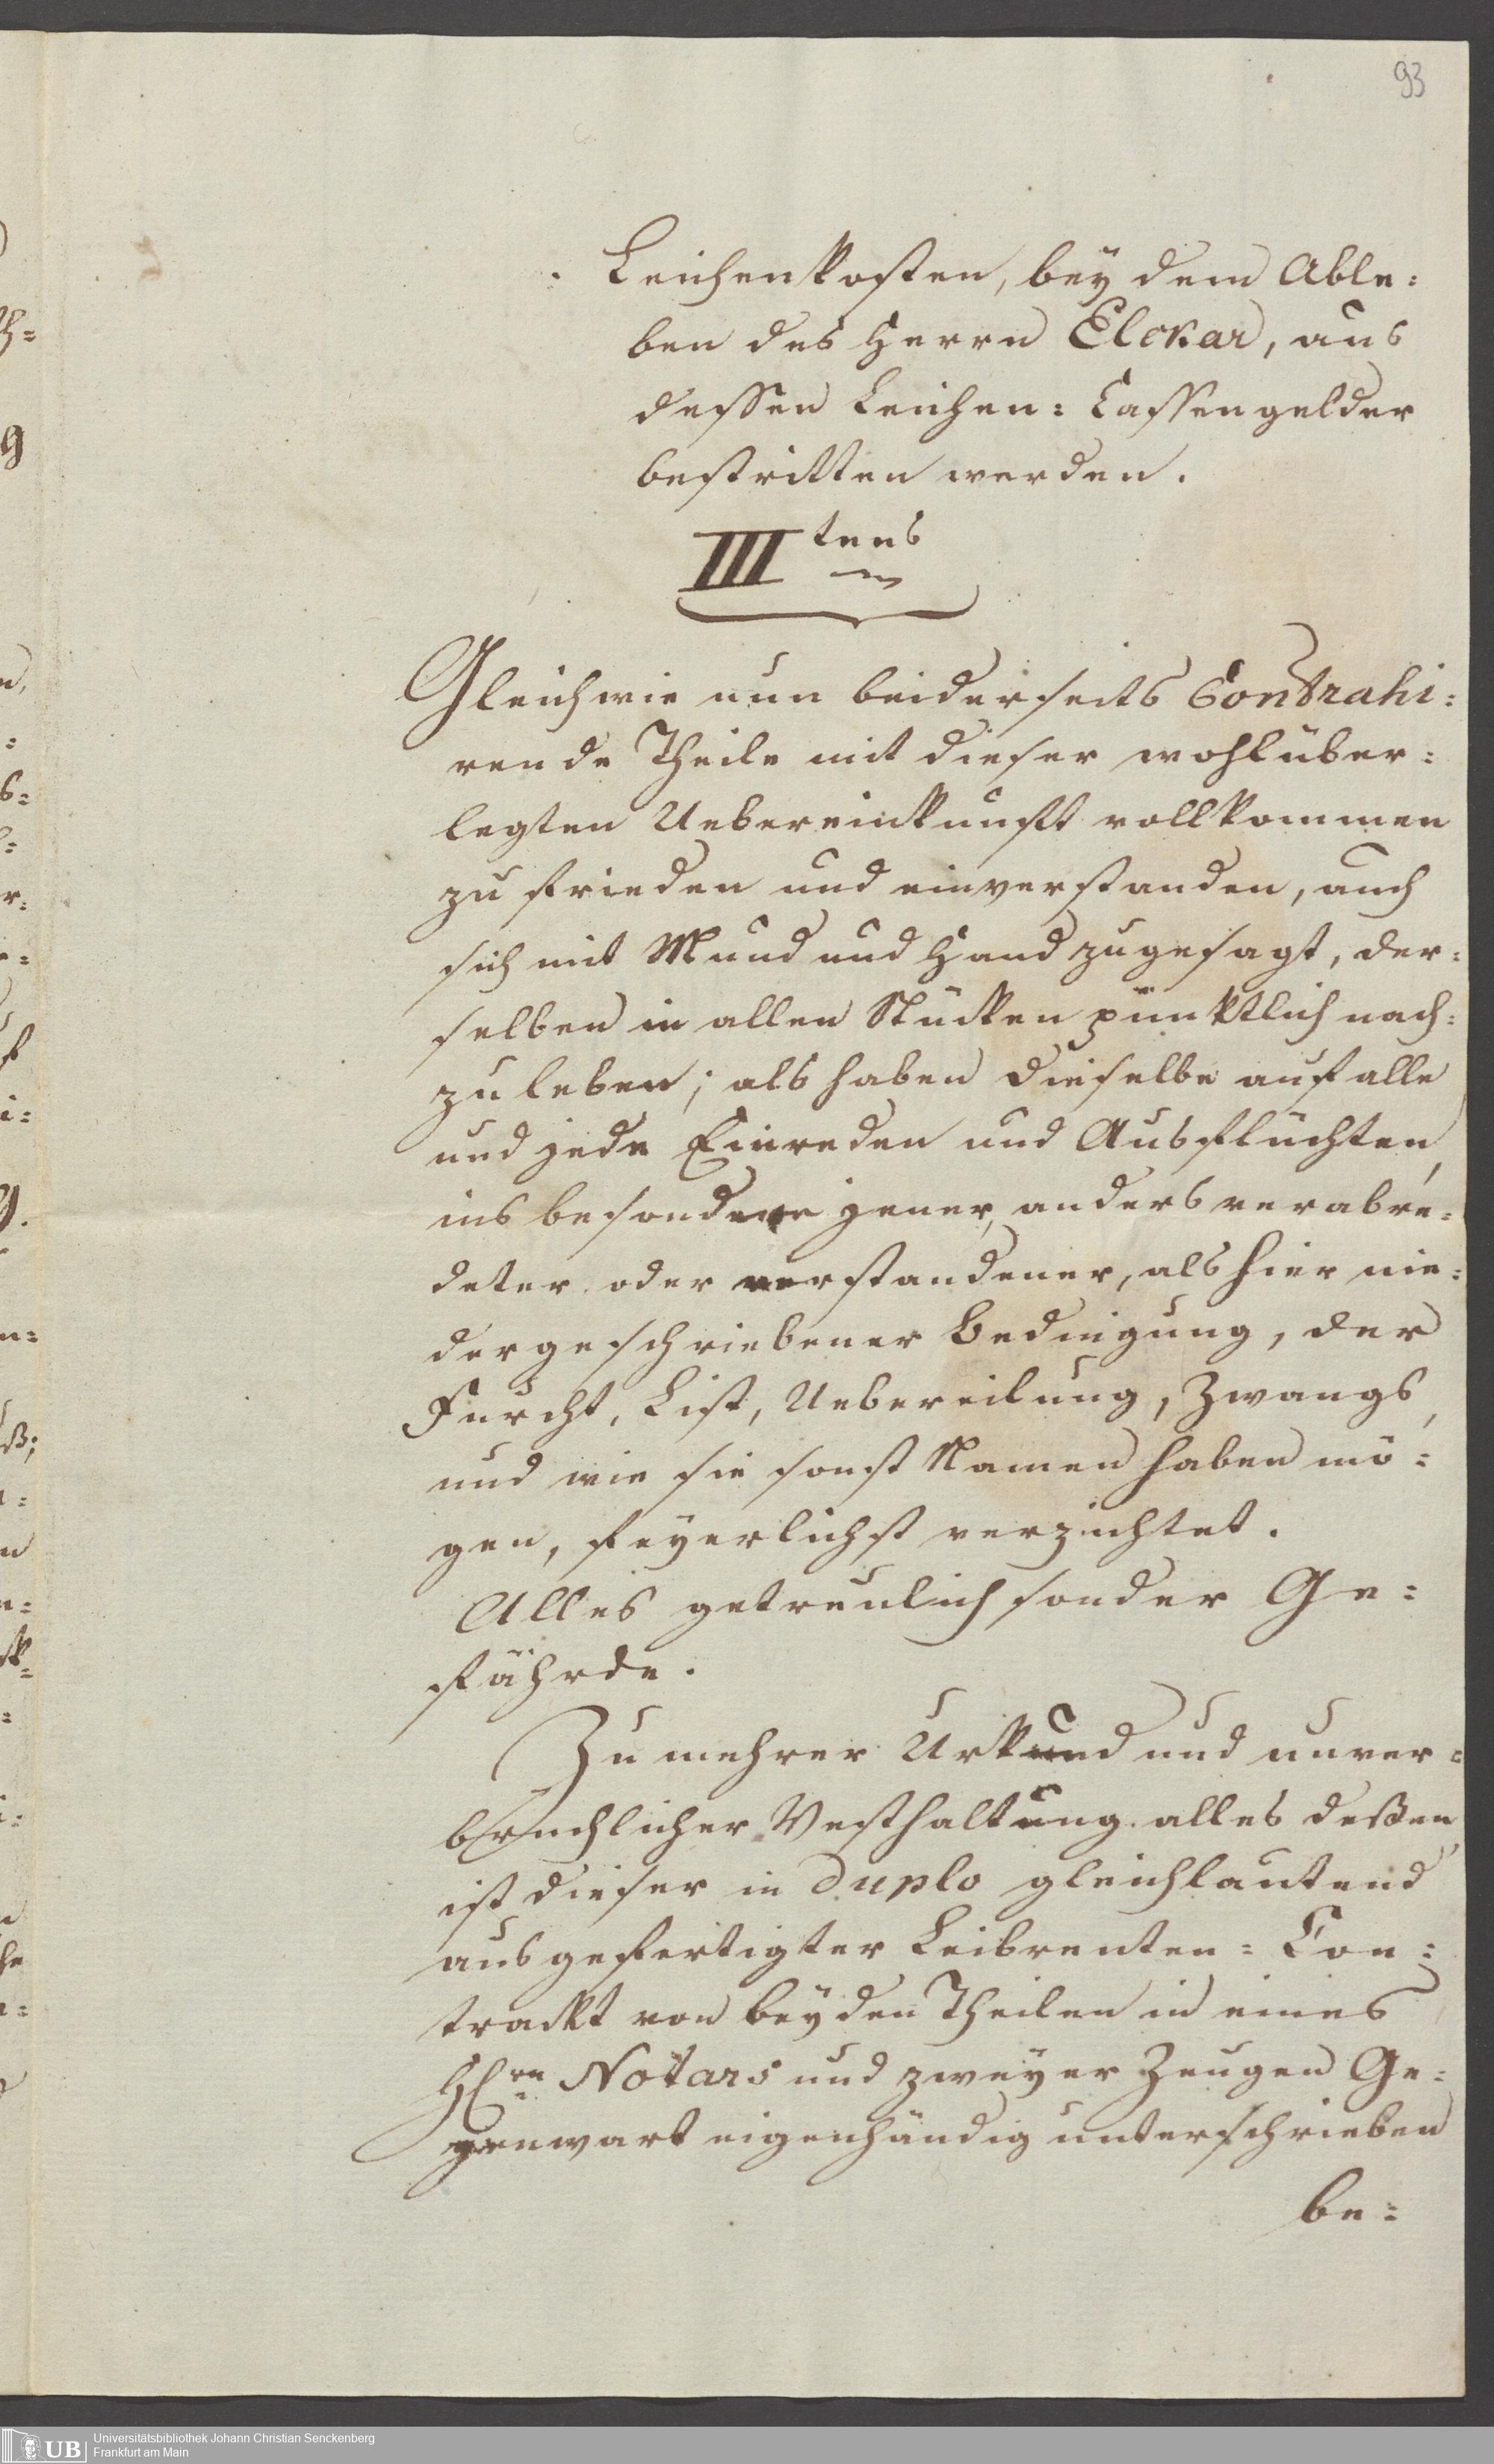 93
Leichenkosten, bey dem Able:
ben des Herrn Elckar, aus
dessen Leichen: Cassengelder
bestritten werden.
III tens
Gleichwie nun beiderseits Contrahi:
rende Theile mit dieser wohlüber:
legten Uebereinkunft vollkommen
zufrieden und einverstanden, auch
sich mit Mund und Hand zugesagt, der:
selben in allen Stücken pünktlich nach:
zuleben; als haben dieselbe auf alle
und jede Einreden und Ausflüchten,
ins besondere jener, anders verabre:
deter oder verstandener, als hier nie:
dergeschriebener Bedingung, der
Furcht, List, Uebereilung, Zwangs,
und wie sie sonst Namen haben mö:
gen, feyerlichst verzichtet.
Alles getreulich sonder Ge:
fährde.
Zu mehrer Urkund und unver:
brüchlicher Vesthaltung alles deßen,
ist dieser in duplo gleichlautend
ausgefertigter Leibrenten: Con:
trackt von beyden Theilen in eines
H[er]rn Notars und zweyer Zeugen Ge:
genwart eigenhändig unterschrieben
be:
UB
Universitätsbibliothek Johann Christian Senckenberg
Frankfurt am Main